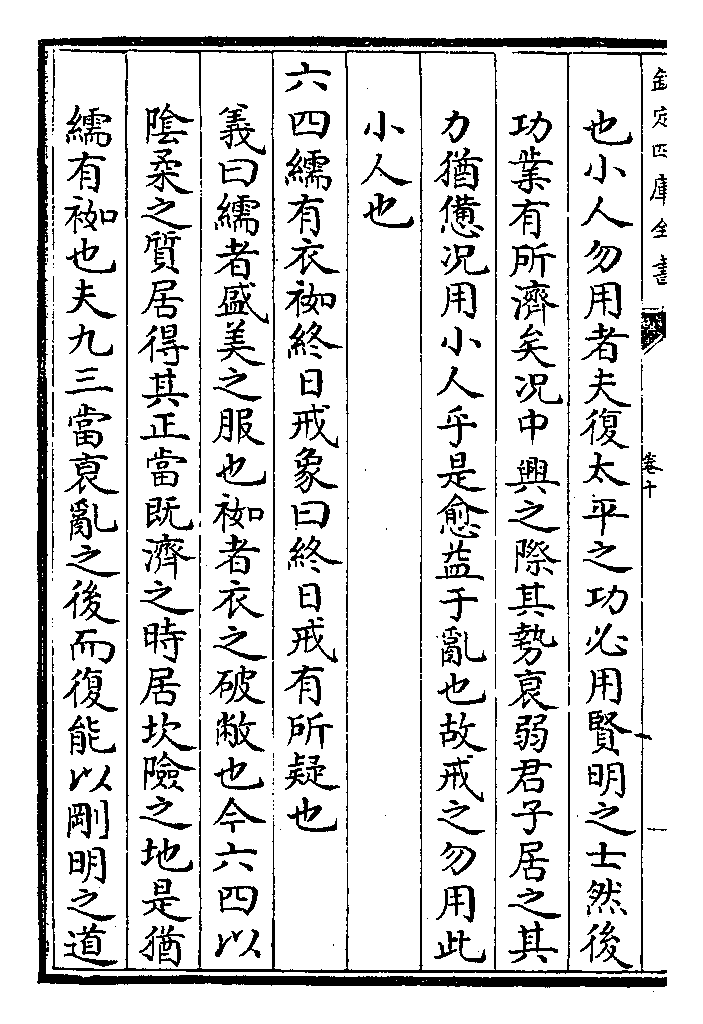 欽定四庫全書
卷十
也小人勿用者夫復太平之功必用賢明之士然後
功業有所濟矣况中興之際其勢衰弱君子居之其
力猶憊况用小人乎是愈益于亂也故戒之勿用此
小人也
六四繻有衣袽終日戒象曰終日戒有所疑也
義曰繻者盛美之服也袽者衣之破敝也今六四以
隂柔之質居得其正當既濟之時居坎險之地是猶
繻有袽也夫九三當衰亂之後而復能以剛明之道